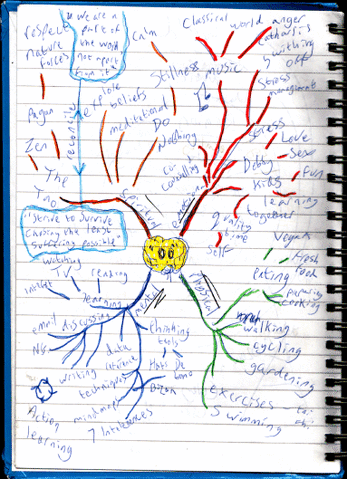 "We are a
part of
the world
not apart
from it"
respect
nature
forces
Calm
Pagan
Zen
The
Tao
reconcile
explore
beliefs
meditational
Do
Nothing
Spiritual
"Strive to Survive
causing the least
suffering possible"
Classical
world
anger
Catharsis
switching
off
Stillness
music
Stress
management
co-
counselling
emotional
Stress
Love
Debby
Sex
Fun
Kids
learning
together
quality
time
Self
Vegan
Fresh
food
eating
cooking
physical
walking
cycling
gardening
exercises
tai
chi
swimming
watching
TV
reading
internet
learning
mental
email
discussing
writing
techniques
Thinking
tools
De
Bono
Buzan
mindmaps
7 Intelligences
Action
learning